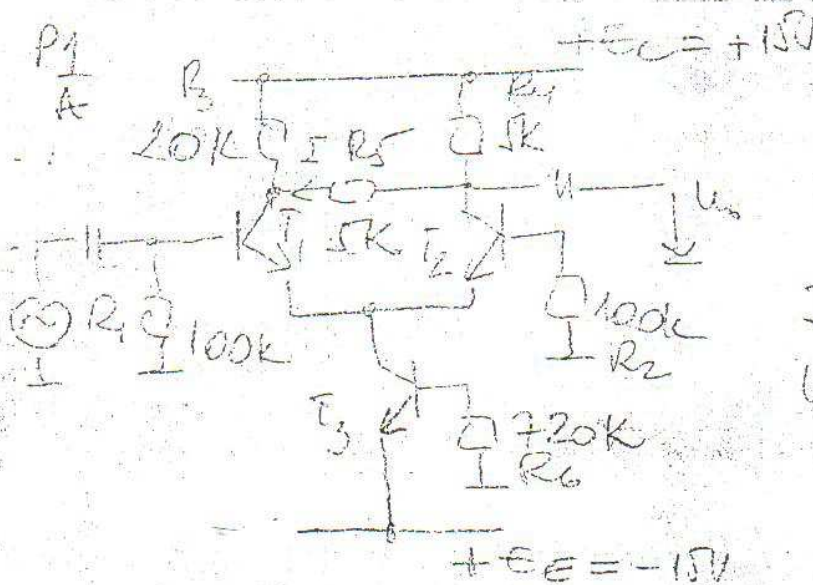 P1
A
+E_C = +15V
R3
20K
I
R5
R4
5K
T1
5K
T2
R1
100K
100k
R2
T3
720K
R6
+E_E = -15V